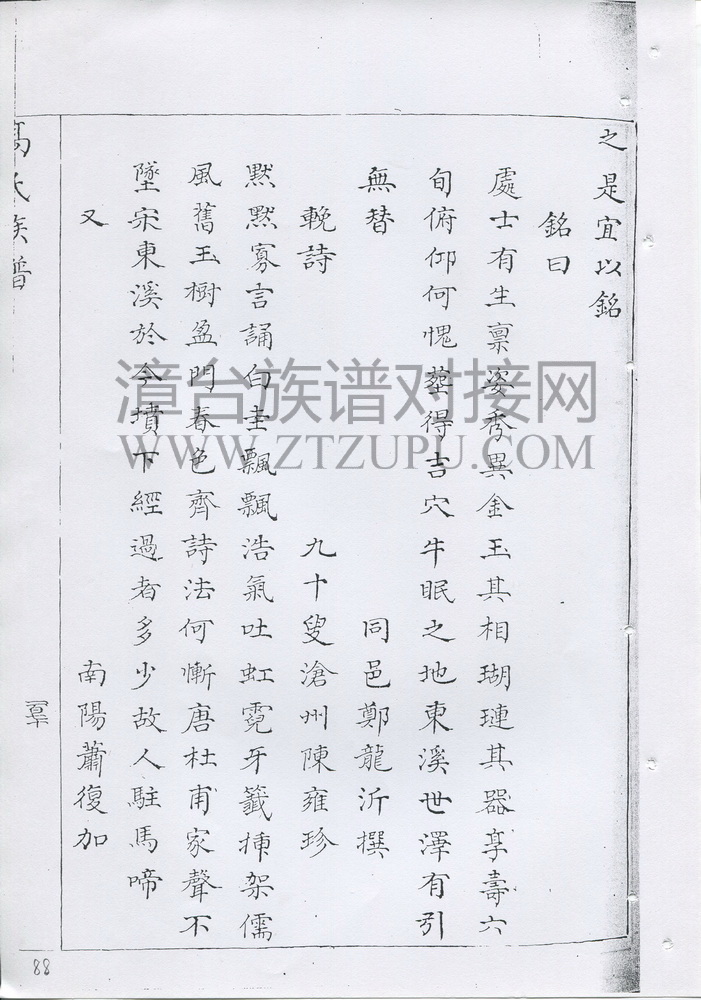 之是宜以銘
銘曰
處士有生禀姿秀異金玉其相瑚璉其器享壽六
旬俯仰何愧葬得吉穴牛眠之地東溪世澤有引
無替
同邑鄭龍沂撰
輓詩
九十叟滄州陳雍珍
默默寡言誦白圭飄飄浩氣吐虹霓牙籤揷架儒
風舊玉樹盈門春色齊詩法何慚唐杜甫家聲不
墜宋東溪於今墳下經過者多少故人駐馬啼
又
南陽蕭復加
高氏族譜
88
漳台族谱对接网
WWW.ZTZUPU.COM